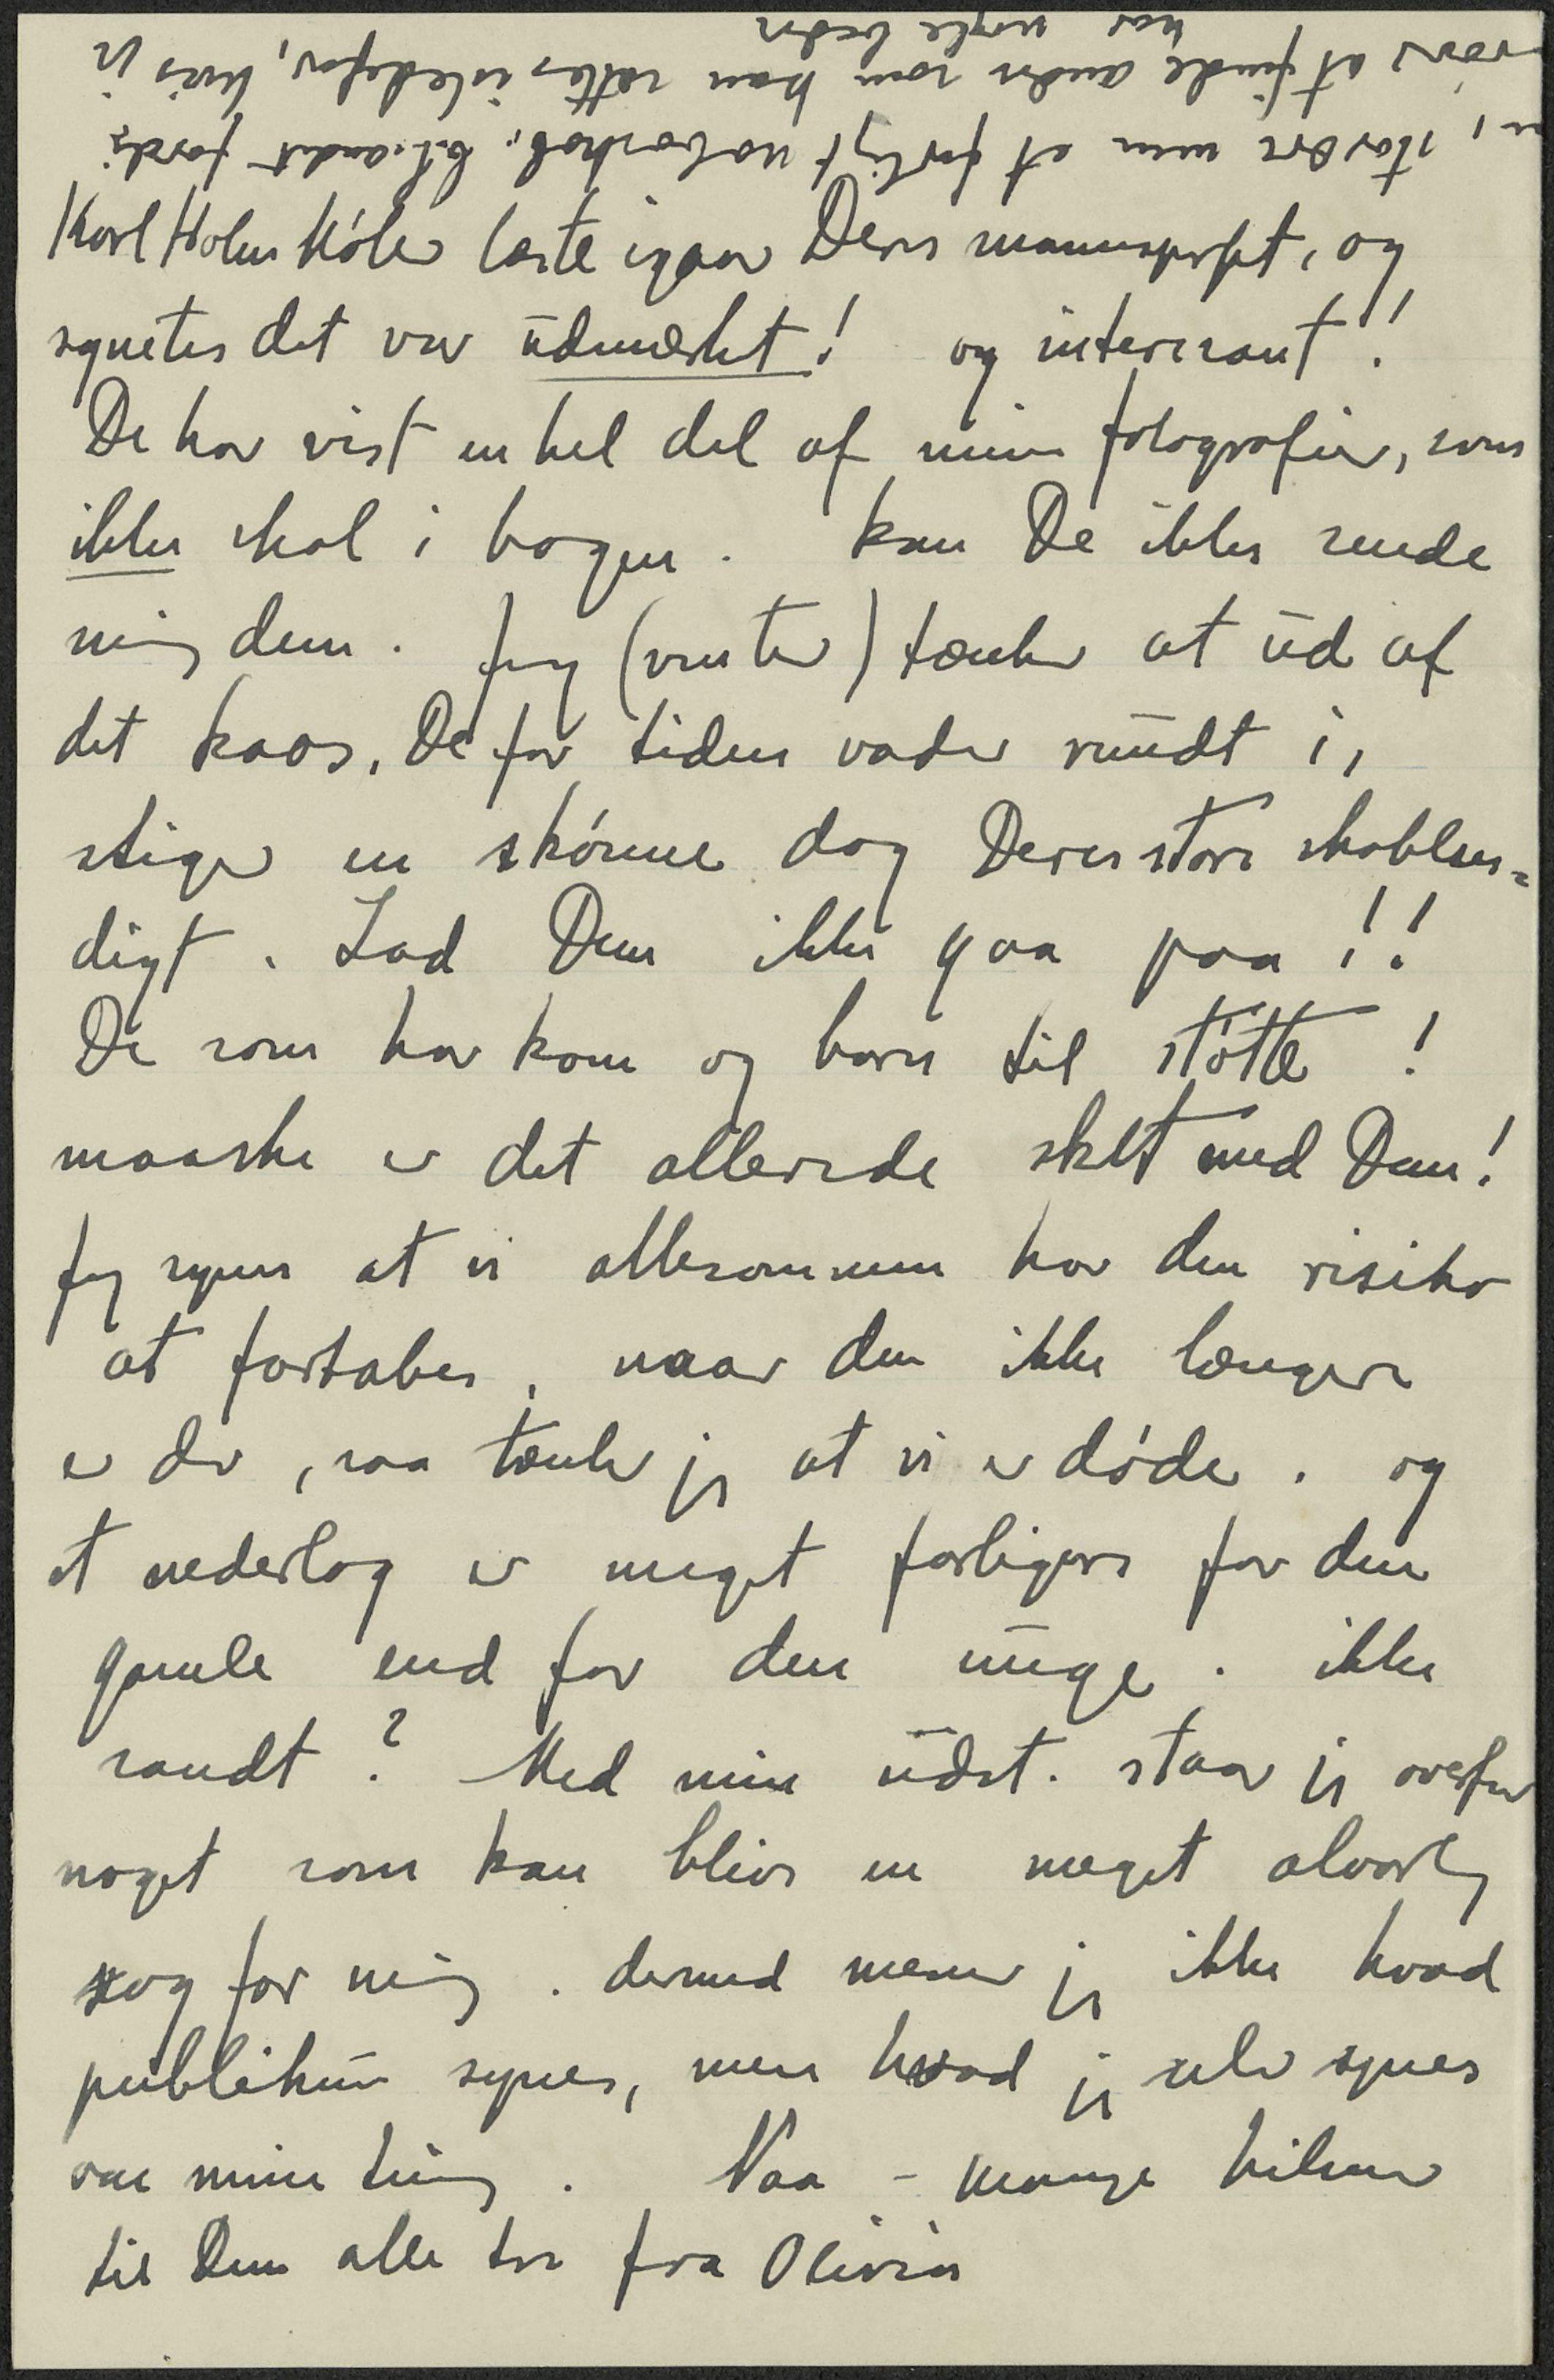 Karl Holm Köler læste igaar Deres manuscript, og
synetes det var udmærket! og interesant!
De har vist en hel del af mine fotografier, som
ikke skal i bogen. kan De ikke sende
mig dem. Jeg (venter) tænker at ud af
det kaos, De for tiden vader rundt i,
stiger en skönne dag Deres store skabelses=
digt. Lad Dem ikke gaa paa!!
De som har kone og barn til stötte!
maaske er det allerede sket med Dem!
Jeg synes at vi allesammen har den risiko
at fortabes, naar den ikke længere
er der, saa tænker jeg at vi er döde. og
et nederlag er meget farligere for den
gamle end for den unge. ikke
sandt? Med min udst. staar jeg overfor
noget som kan blive en meget alvorlig
sag for mig. dermed mener jeg ikke hvad
publikum synes, men hvad jeg selv synes
om mine ting. Naa - mange hilsner
til Dem alle tre fra Olivia
stadere men et farligt naboskab. bl. andet fordi
at finde andre som kan sættes istedefor, hvis jeg
har nogle bedre